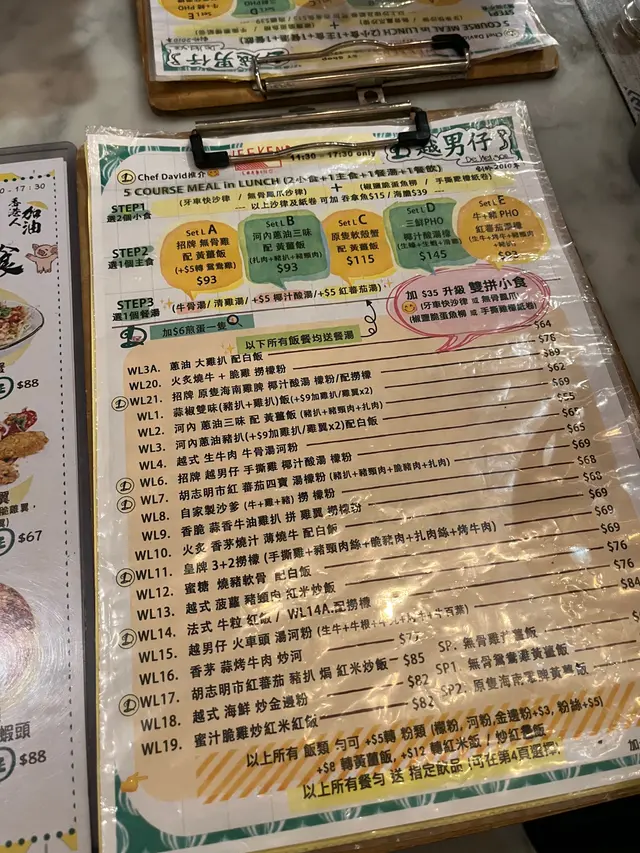 5 COURSE MEAL in LUNCH (2小食+1主食+1餐湯+1餐飲)
Chef David推介
11:30 - 17:30 only
越男仔
5 COURSE MEAL in LUNCH (2小食+1主食+1餐湯+1餐飲)
STEP1
選2個小食
(牙車快沙律 / 無骨鳳爪沙律)
+
(椒鹽脆蛋魚柳 / 手撕雞檬紙卷)
以上沙律及紙卷可加 吞拿魚$15 / 海膽$39
STEP2
選1個主食
Set A
招牌 無骨雞
配 黃薑飯
(+$5轉鴛鴦雞)
$93
Set B
河內蔥油三味
配 黃薑飯
(扎肉+豬扒+豬頸肉)
$93
Set C
原隻軟殼蟹
配 黃薑飯
$115
Set D
三鮮PHO
椰汁酸湯檬
$145
Set E
牛+豬 PHO
紅蕃茄湯檬
$93
STEP3
選1個餐湯
(牛骨湯/ 清雞湯/ +$5 椰汁酸湯/ +$5 紅蕃茄湯)
加$6煎蛋一隻
加 $35 升級 雙拼小食
(牙車快沙律 或 無骨鳳爪)
(椒鹽脆蛋魚柳 或 手撕雞檬紙卷)
以下所有飯餐均送餐湯
WL3A. 蔥油 大雞扒 配白飯 $64
WL20. 火炙燒牛 + 脆雞 撈檬粉 $76
WL21. 招牌 原隻海南雞髀 椰汁酸湯 檬粉/配撈檬 $89
WL1. 蒜椒雙味(豬扒+雞扒)飯(+$9加雞扒/雞翼x2) $62
WL2. 河內 蔥油三味 配 黃薑飯 (豬扒+豬頸肉+扎肉) $69
WL3. 河內蔥油豬扒(+$9加雞扒/雞翼x2)配白飯 $55
WL4. 越式 生牛肉 牛骨湯河粉 $65
WL6. 招牌 越男仔 手撕雞 椰汁酸湯 檬粉 $69
WL7. 胡志明市紅 蕃茄四寶 湯檬粉 (豬扒+豬頸肉+脆豬肉+扎肉) $66
WL8. 自家製沙爹 (牛+雞+豬) 撈 檬粉 $68
WL9. 香脆 蒜香牛油雞扒 拼 雞翼 撈檬粉 $69
WL10. 火炙 香茅燒汁 薄燒牛 配白飯 $69
WL11. 皇牌 3+2撈檬 (手撕雞+豬頸肉絲+脆豬肉+扎肉絲+烤牛肉) $69
WL12. 蜜糖 燒豬軟骨 配白飯 $69
WL13. 越式 菠蘿 豬頸肉 紅米炒飯 $76
WL14. 法式 牛粒 紅飯 / WL14A.配撈檬 $76
WL15. 越男仔 火車頭 湯河粉 $84
WL16. 香茅 蒜烤牛肉 炒河
WL17. 胡志明市紅蕃茄 豬扒 焗 紅米炒飯 $85
WL18. 越式 海鮮 炒金邊粉 $82
WL19. 蜜汁脆雞炒紅米紅飯 $82
SP. 無骨雞扒黃薑飯
SP1. 無骨鴛鴦雞黃薑飯
SP2. 原隻海南雞髀黃薑飯
以上所有 飯類 勻可 +$5轉 粉類 (檬粉, 河粉,金邊粉+$3, 粉捲+$5)
+$8 轉黃薑飯, +$12 轉紅米飯 / 炒紅米飯
以上所有餐勻 送 指定飲品 (可在第4頁選擇)
- 17:30
香港人加油
$88
$67
蝦頭
$88